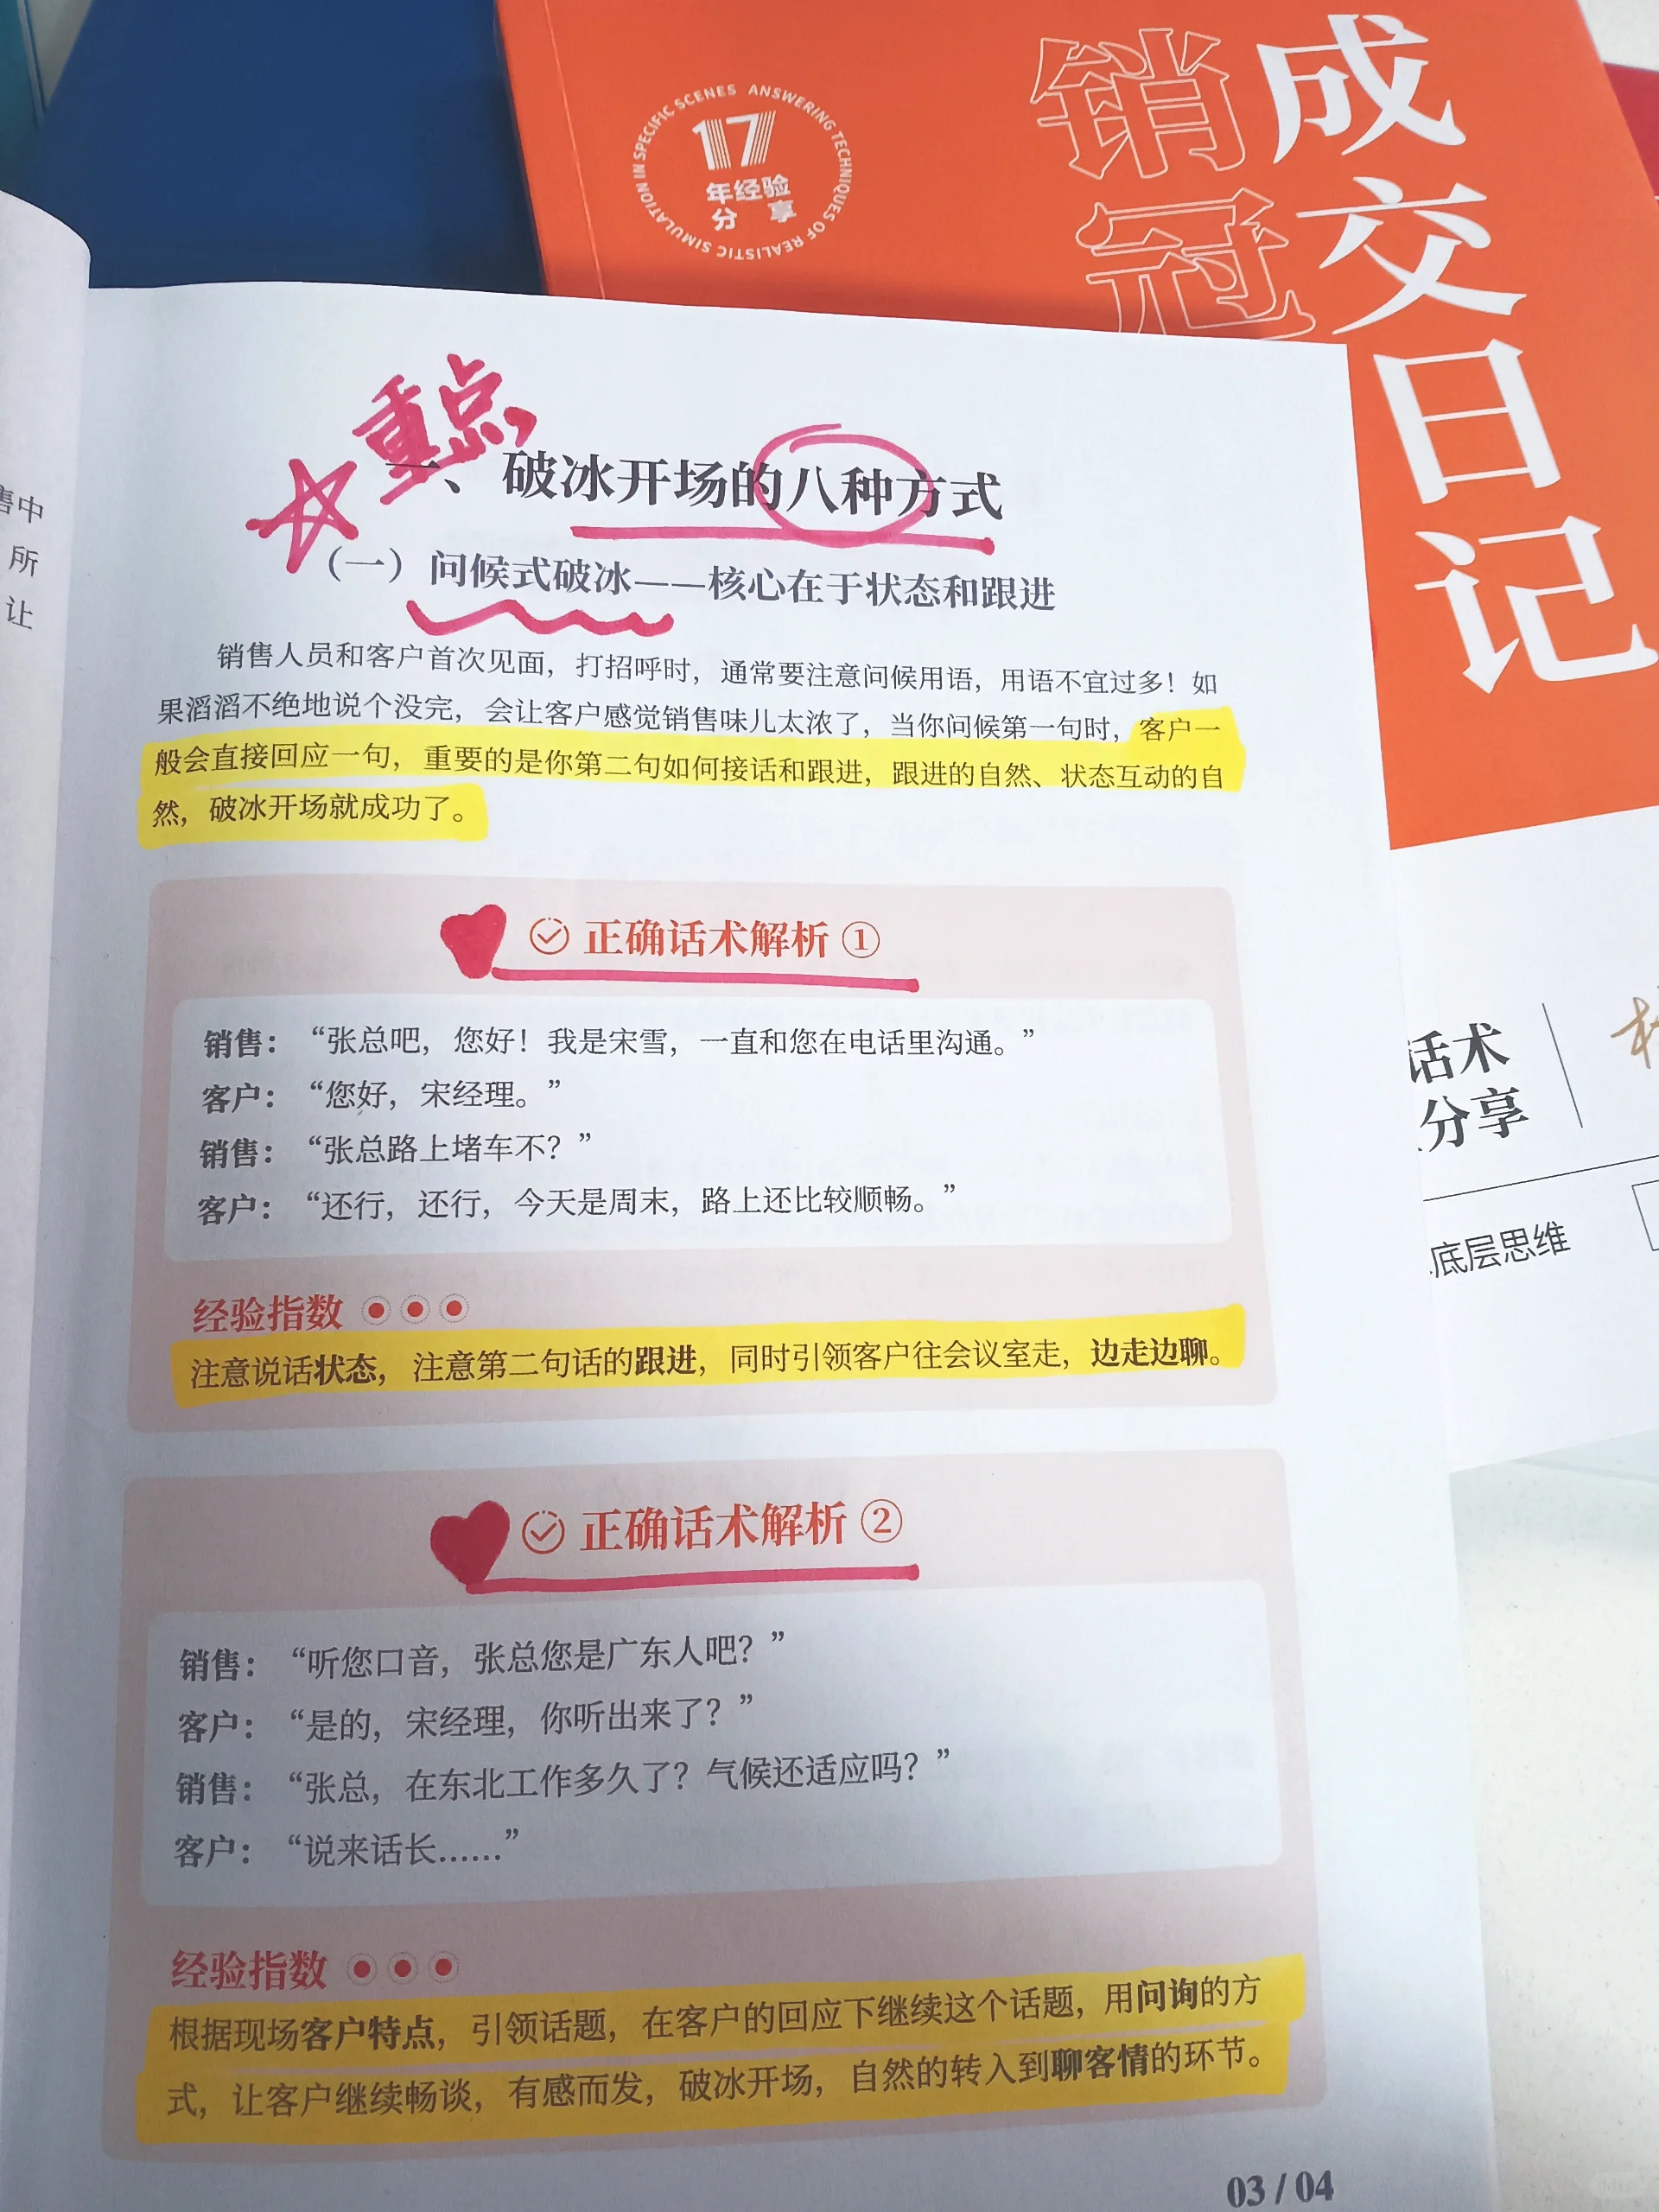 销冠
成交日记
17
年经验
分享
REALISTIC SIMULATION IN SPECIFIC SCENES ANSWERING TECHNIQUES OF
售中
所
让
重点
一、破冰开场的八种方式
（一）问候式破冰——核心在于状态和跟进
销售人员和客户首次见面，打招呼时，通常要注意问候用语，用语不宜过多！如
果滔滔不绝地说个没完，会让客户感觉销售味儿太浓了，当你问候第一句时，客户一
般会直接回应一句，重要的是你第二句如何接话和跟进，跟进的自然、状态互动的自
然，破冰开场就成功了。
正确话术解析①
销售：“张总吧，您好！我是宋雪，一直和您在电话里沟通。”
客户：“您好，宋经理。”
销售：“张总路上堵车不？”
客户：“还行，还行，今天是周末，路上还比较顺畅。”
经验指数
注意说话状态，注意第二句话的跟进，同时引领客户往会议室走，边走边聊。
正确话术解析②
销售：“听您口音，张总您是广东人吧？”
客户：“是的，宋经理，你听出来了？”
销售：“张总，在东北工作多久了？气候还适应吗？”
客户：“说来话长……”
经验指数
根据现场客户特点，引领话题，在客户的回应下继续这个话题，用问询的方
式，让客户继续畅谈，有感而发，破冰开场，自然的转入到聊客情的环节。
03 / 04
话术
分享
底层思维